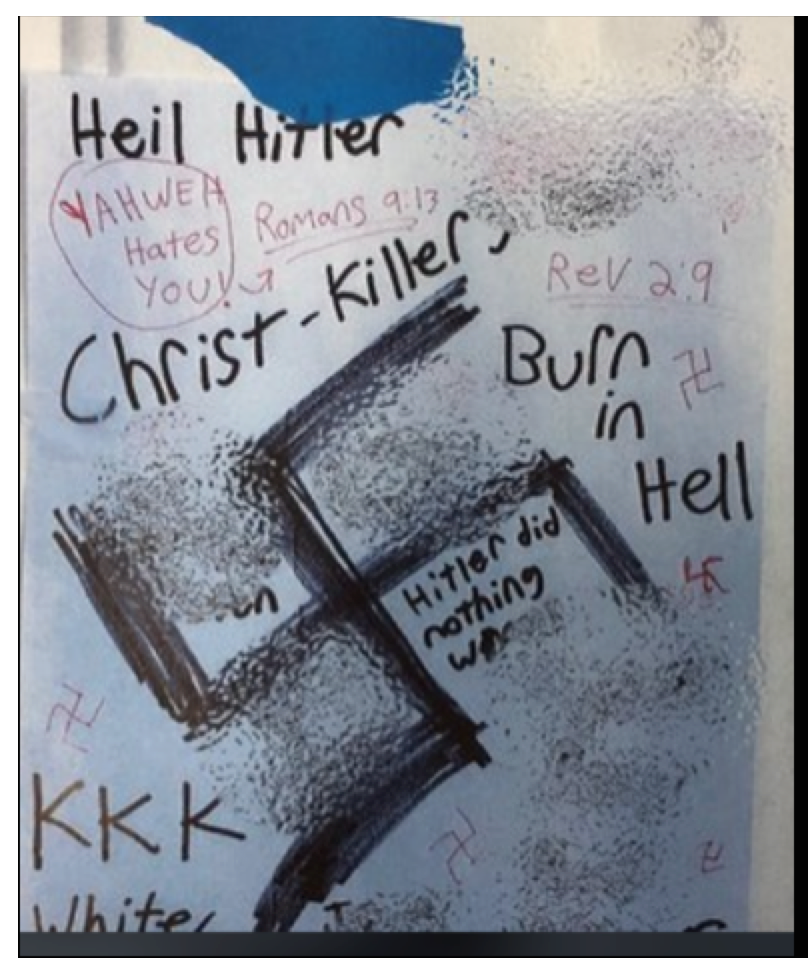 Heil Hitler
YAHWEH
Hates
YOU!
Romans 9:13
Christ-Killer,
Rev 2:9
Burn
in
Hell
Hitler did
nothing
KKK
White